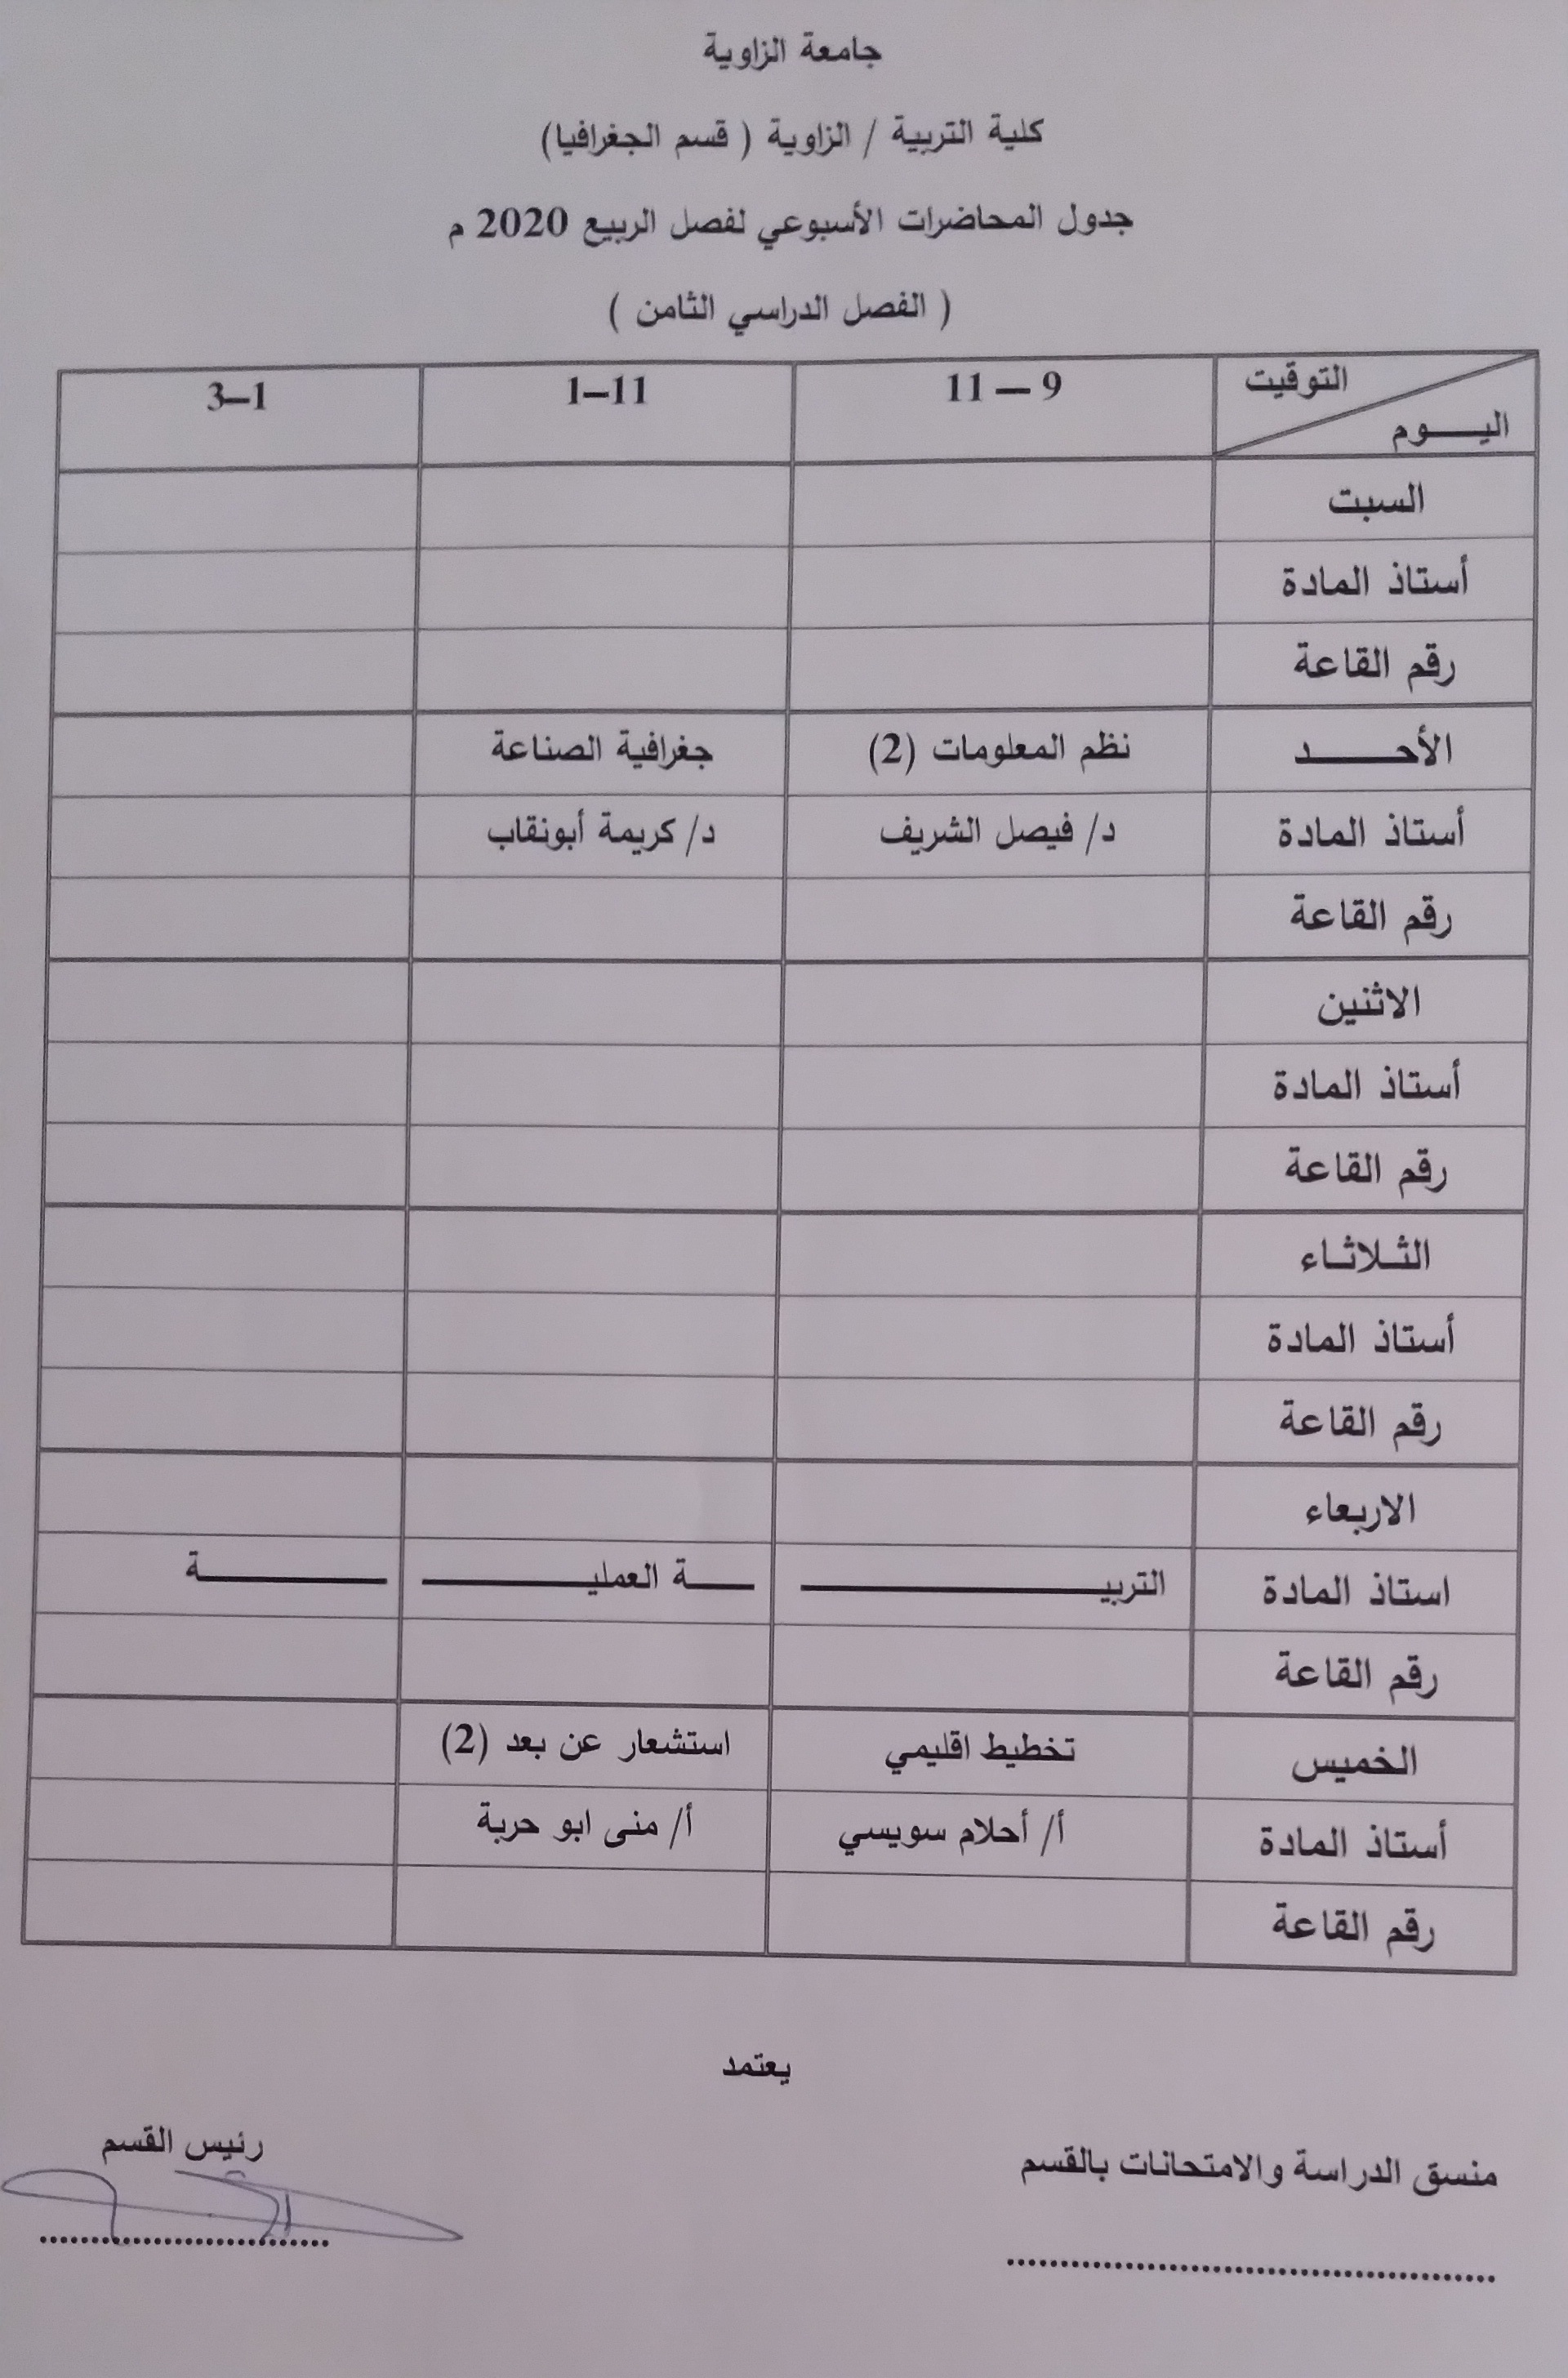 جامعة الزاوية
كلية التربية / الزاوية ( قسم الجغرافيا)
جدول المحاضرات الأسبوعي لفصل الربيع 2020 م
( الفصل الدراسي الثامن )
التوقيت
اليـــــوم
9 – 11
11–1
1–3
السبت
أستاذ المادة
رقم القاعة
الأحـــــــد
نظم المعلومات (2)
جغرافية الصناعة
أستاذ المادة
د/ فيصل الشريف
د/ كريمة أبونقاب
رقم القاعة
الاثنين
أستاذ المادة
رقم القاعة
الثـلاثـاء
أستاذ المادة
رقم القاعة
الاربعاء
استاذ المادة
التربيــــــــــــــــــــــــــــــة العمليــــــــــــــــــــــــــــــة
رقم القاعة
الخميس
تخطيط اقليمي
استشعار عن بعد (2)
أستاذ المادة
أ/ أحلام سويسي
أ/ منى ابو حربة
رقم القاعة
يعتمد
منسق الدراسة والامتحانات بالقسم
رئيس القسم